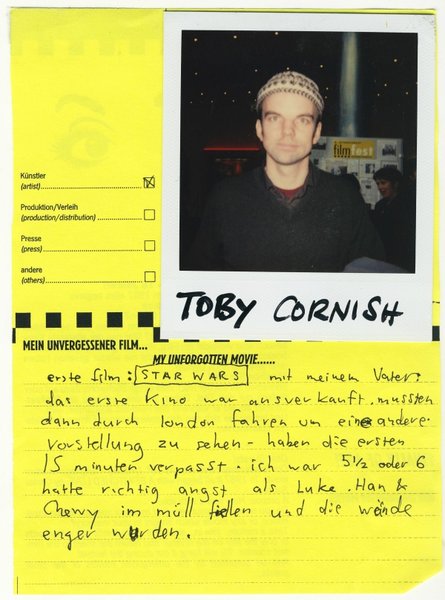 film
fest
Künstler
(artist)
Produktion/Verleih
(production/distribution)
Presse
(press)
andere
(others)
TOBY CORNISH
MEIN UNVERGESSENER FILM...
MY UNFORGOTTEN MOVIE......
erste film: STAR WARS mit meinem Vater.
das erste Kino war ausverkauft. mussten
dann durch london fahren um eine andere
vorstellung zu sehen - haben die ersten
15 minuten verpasst. ich war 5½ oder 6
hatte richtig angst als Luke. Han &
Chewy im müll fielen und die wände
enger wurden.